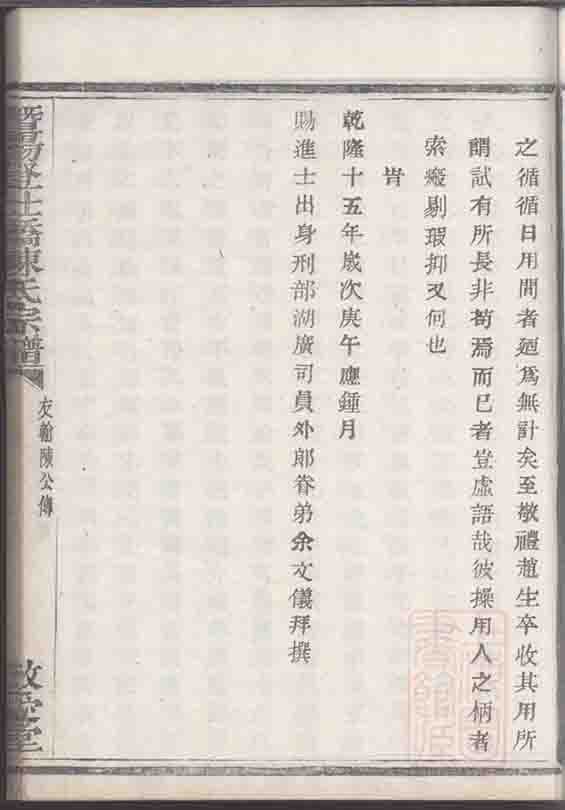 之循循日用間者迥爲無計矣至敬禮趙生卒收其用所
謂試有所長非苟焉而已者豈虛語哉彼操用人之柄者
索瘢剔瑕抑又何也
旹
乾隆十五年歲次庚午應鍾月
賜進士出身刑部湖廣司員外郎眷弟余文儀拜撰
暨陽登仕橋陳氏宗譜
友翰陳公傳
敘堂